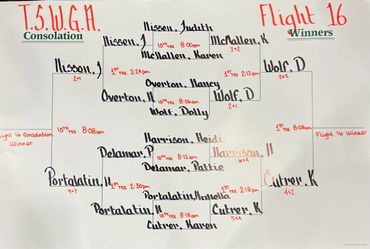 T.S.W.G.A.
Flight 16
Consolation
Winners
Nisson, Judith
Nisson, J
10TH TEE 8:00am
McMallen, K
3+2
McMallen, Karen
Nisson, J
2+1
1ST TEE 2:24pm
1ST TEE 2:12pm
Wolf, D
3+2
Overton, Nancy
Overton, N
10TH TEE 8:06am
Wolf, D
2+1
Wolf, Dolly
Flight 16 Consolation
Winner
10TH TEE 8:08am
1ST TEE 8:08am
Flight 16 Winner
Harrison, Heidi
Delamar, P
10TH TEE 8:12am
Harrison, H
Delamar, Pattie
Portalatin, N
1ST TEE 2:30pm
1ST TEE 2:18pm
Cutrer, K
4+2
Portalatin, H
10TH TEE 8:18am
Cutrer, K
Cutrer, Karen